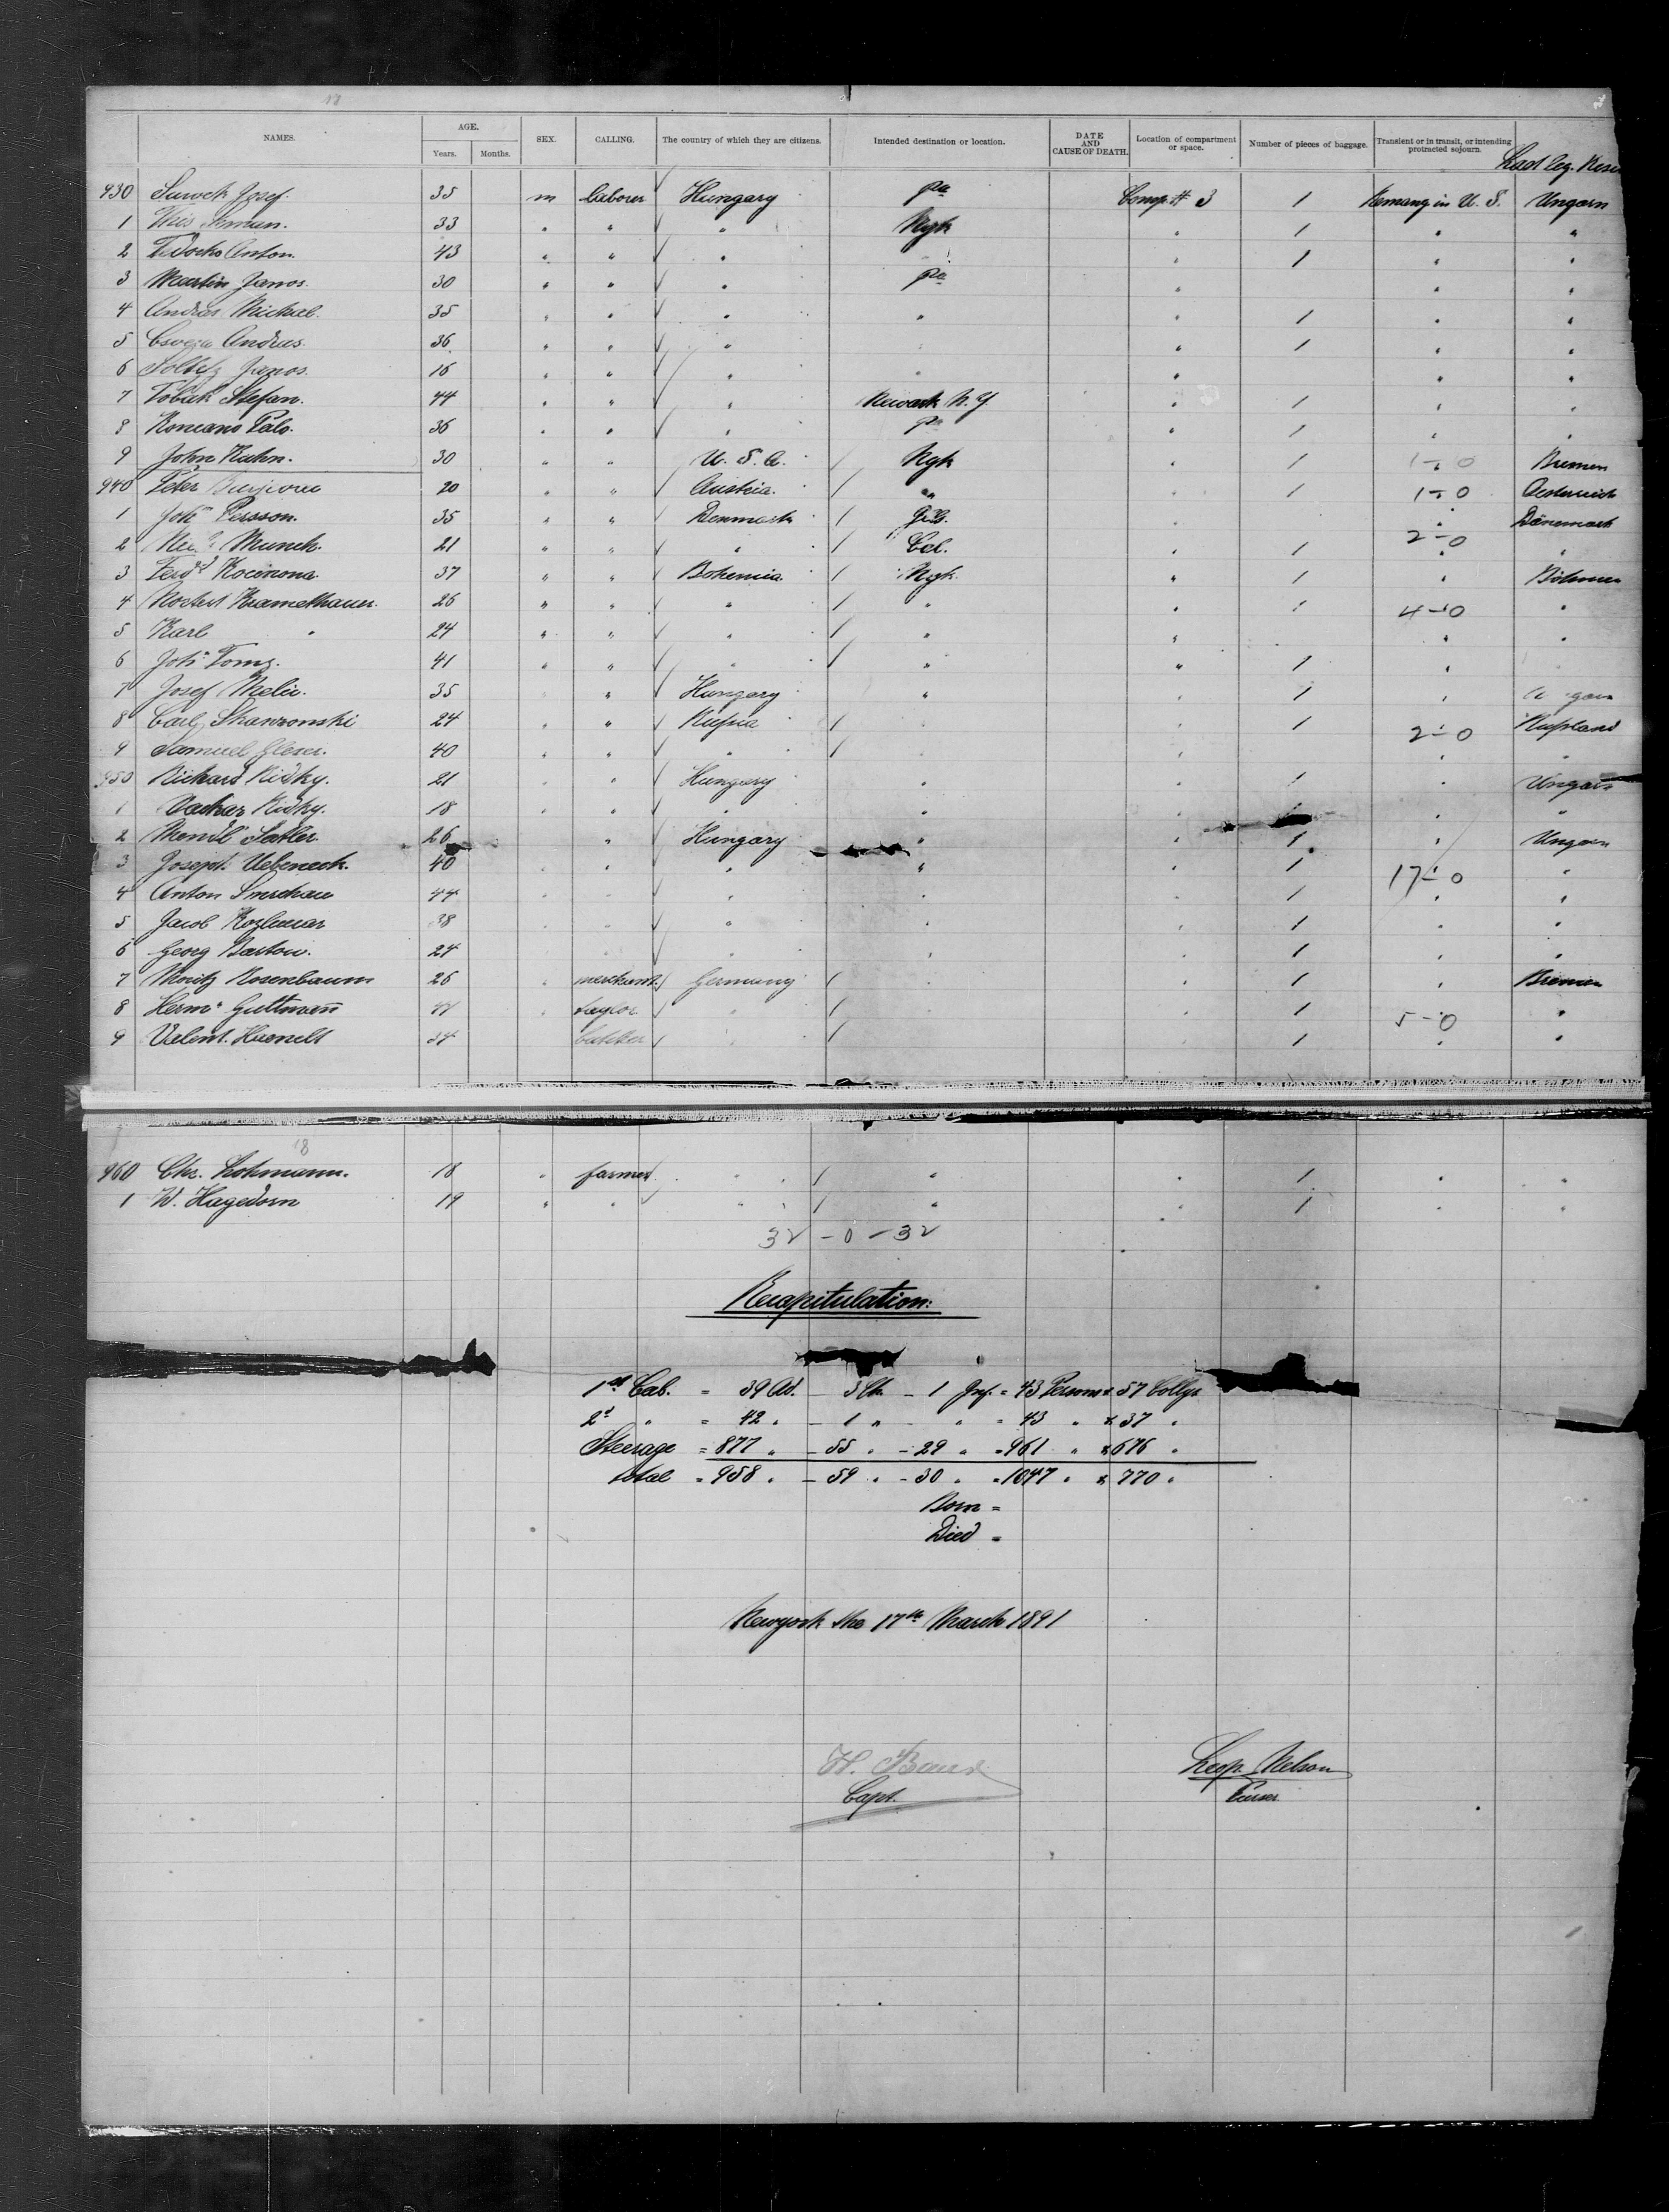 18
NAMES. AGE. Years. Months. SEX. CALLING. The country of which they are citizens. Intended destination or location. DATE AND CAUSE OF DEATH. Location of compartment or space. Number of pieces of baggage. Transient or in transit, or intending protracted sojourn. Last leg.
930 Josef. 35 m laborer Hungary Pa Comp # 3 1 in U. S. Ungarn
1 33 " " " Ngk " 1 " "
2 Anton. 43 " " " " 1 " "
3 Martin Janos. 30 " " " Pa " " "
4 Andras Michael. 35 " " " " " 1 " "
5 Andras. 36 " " " " 1 " "
6 Janos. 16 " " " " " " "
7 Tobak Stefan. 44 " " " Newark N. Y. " 1 " "
8 Palo. 36 " " " Pa " 1 " "
9 John Kuhn. 30 " " U. S. A. Ngk " 1 1-0 Bremen
940 Peter 20 " " Austria. " " 1 1-0 Oesterreich
1 Joh. Persson. 35 " " Denmark " " Dänemark
2 Munch. 21 " " " " 1 2-0 "
3 Ferd. 37 " " Bohemia Ngk " 1 " Böhmen
4 Norbert 26 " " " " " 1 4-0 "
5 Karl " 24 " " " " " " "
6 Joh. Toms. 41 " " " " " 1 "
7 Josef 35 " " Hungary " " 1 "
8 Carl Skawronski 24 " " Russia " 1 2-0 Russland
9 Samuel Gleser. 40 " " " " " "
950 Richard Ridky. 21 " " Hungary " " 1 " Ungarn
1 Ridky. 18 " " " " " " "
2 Mendl Satler 26 " Hungary " " 1 " Ungarn
3 Joseph 40 " " " " " 1 17-0 "
4 Anton 44 " " " " 1 " "
5 Jacob 38 " " " " 1 " "
6 Georg Bartow. 24 " " " 1 " "
7 Moritz Rosenbaum 26 " merchant Germany " 1 " Bremen
8 Herm. Guttmann " taylor " " 1 5-0 "
9 Valent. 34 " " 1 " "
18
960 Chr. Lohmann. 18 " farmer " " " 1 " "
1 W. Hagedorn 19 " " " " " 1 " "
32 - 0 - 32
Recapitulation:
1st Cab. = 39 Ad. - 3 Ch. - 1 Inf. = 43 Persons x 57 Collys
2d " = 42 " - 1 " - " = 43 " x 37 "
Steerage = 877 " - 55 " - 29 " = 961 " x 676 "
total = 958 " - 59 " - 30 " = 1047 " x 770 "
Born =
Died =
Newyork the 17th March 1891
H.
Leop. Nelson
Capt.
Purser